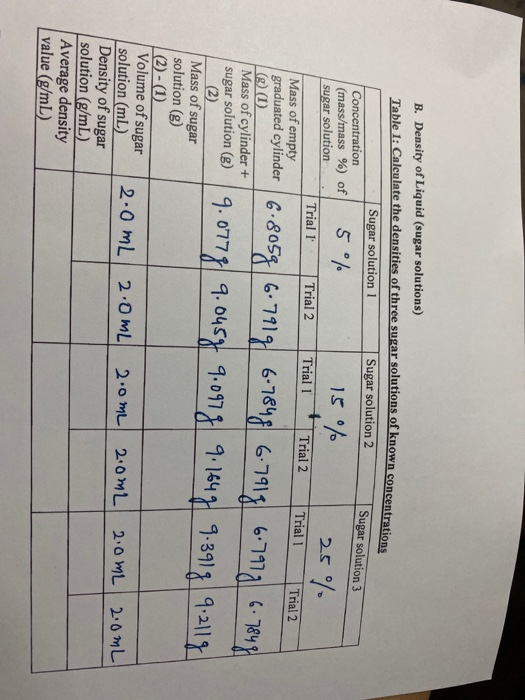 B. Density of Liquid (sugar solutions)
Table 1: Calculate the densities of three sugar solutions of known concentrations
Sugar solution 1 Sugar solution 2 Sugar solution 3
Concentration
(mass/mass %) of
sugar solution
5 % 15 % 25 %
Trial 1 Trial 2 Trial 1 Trial 2 Trial 1 Trial 2
Mass of empty
graduated cylinder
(g) (1)
6.805g 6.791g 6.784g 6.791g 6.797g 6.784g
Mass of cylinder +
sugar solution (g)
(2)
9.077g 9.045g 9.097g 9.164g 9.391g 9.211g
Mass of sugar
solution (g)
(2) - (1)
Volume of sugar
solution (mL)
2.0 mL 2.0 mL 2.0 mL 2.0 mL 2.0 mL 2.0 mL
Density of sugar
solution (g/mL)
Average density
value (g/mL)